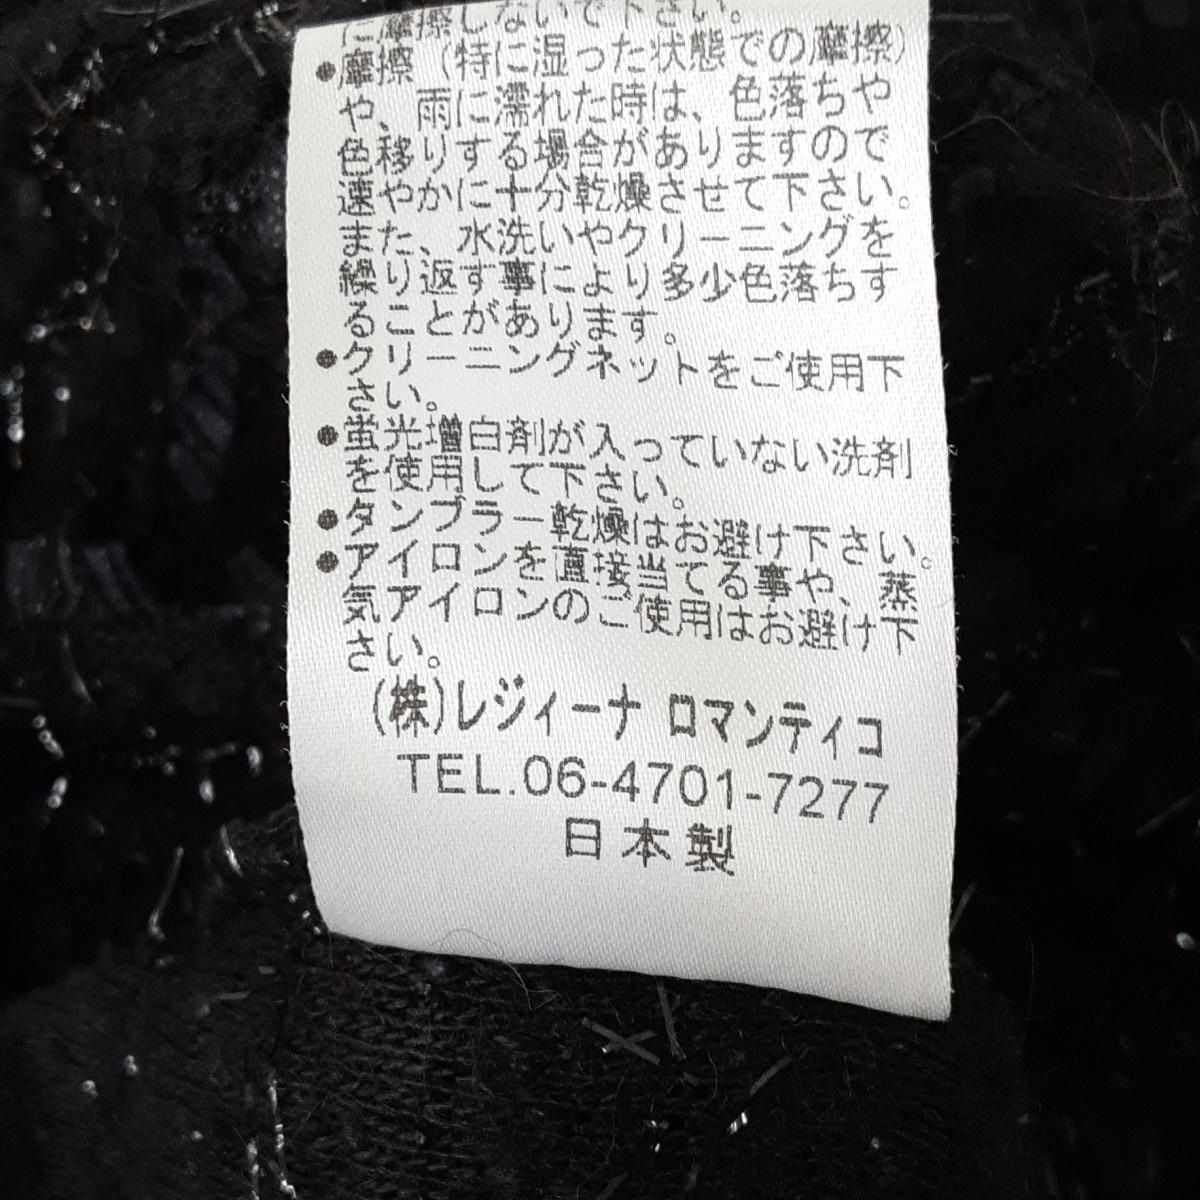 に摩擦しないで下さい。
●摩擦(特に湿った状態での摩擦)
や、雨に濡れた時は、色落ちや
色移りする場合がありますので
速やかに十分乾燥させて下さい。
また、水洗いやクリーニングを
繰り返す事により多少色落ちす
ることがあります。
●クリーニングネットをご使用下
さい。
●蛍光増白剤が入っていない洗剤
を使用して下さい。
●タンブラー乾燥はお避け下さい。
●アイロンを直接当てる事や、蒸
気アイロンのご使用はお避け下
さい。
(株)レジィーナ ロマンティコ
TEL.06-4701-7277
日本製